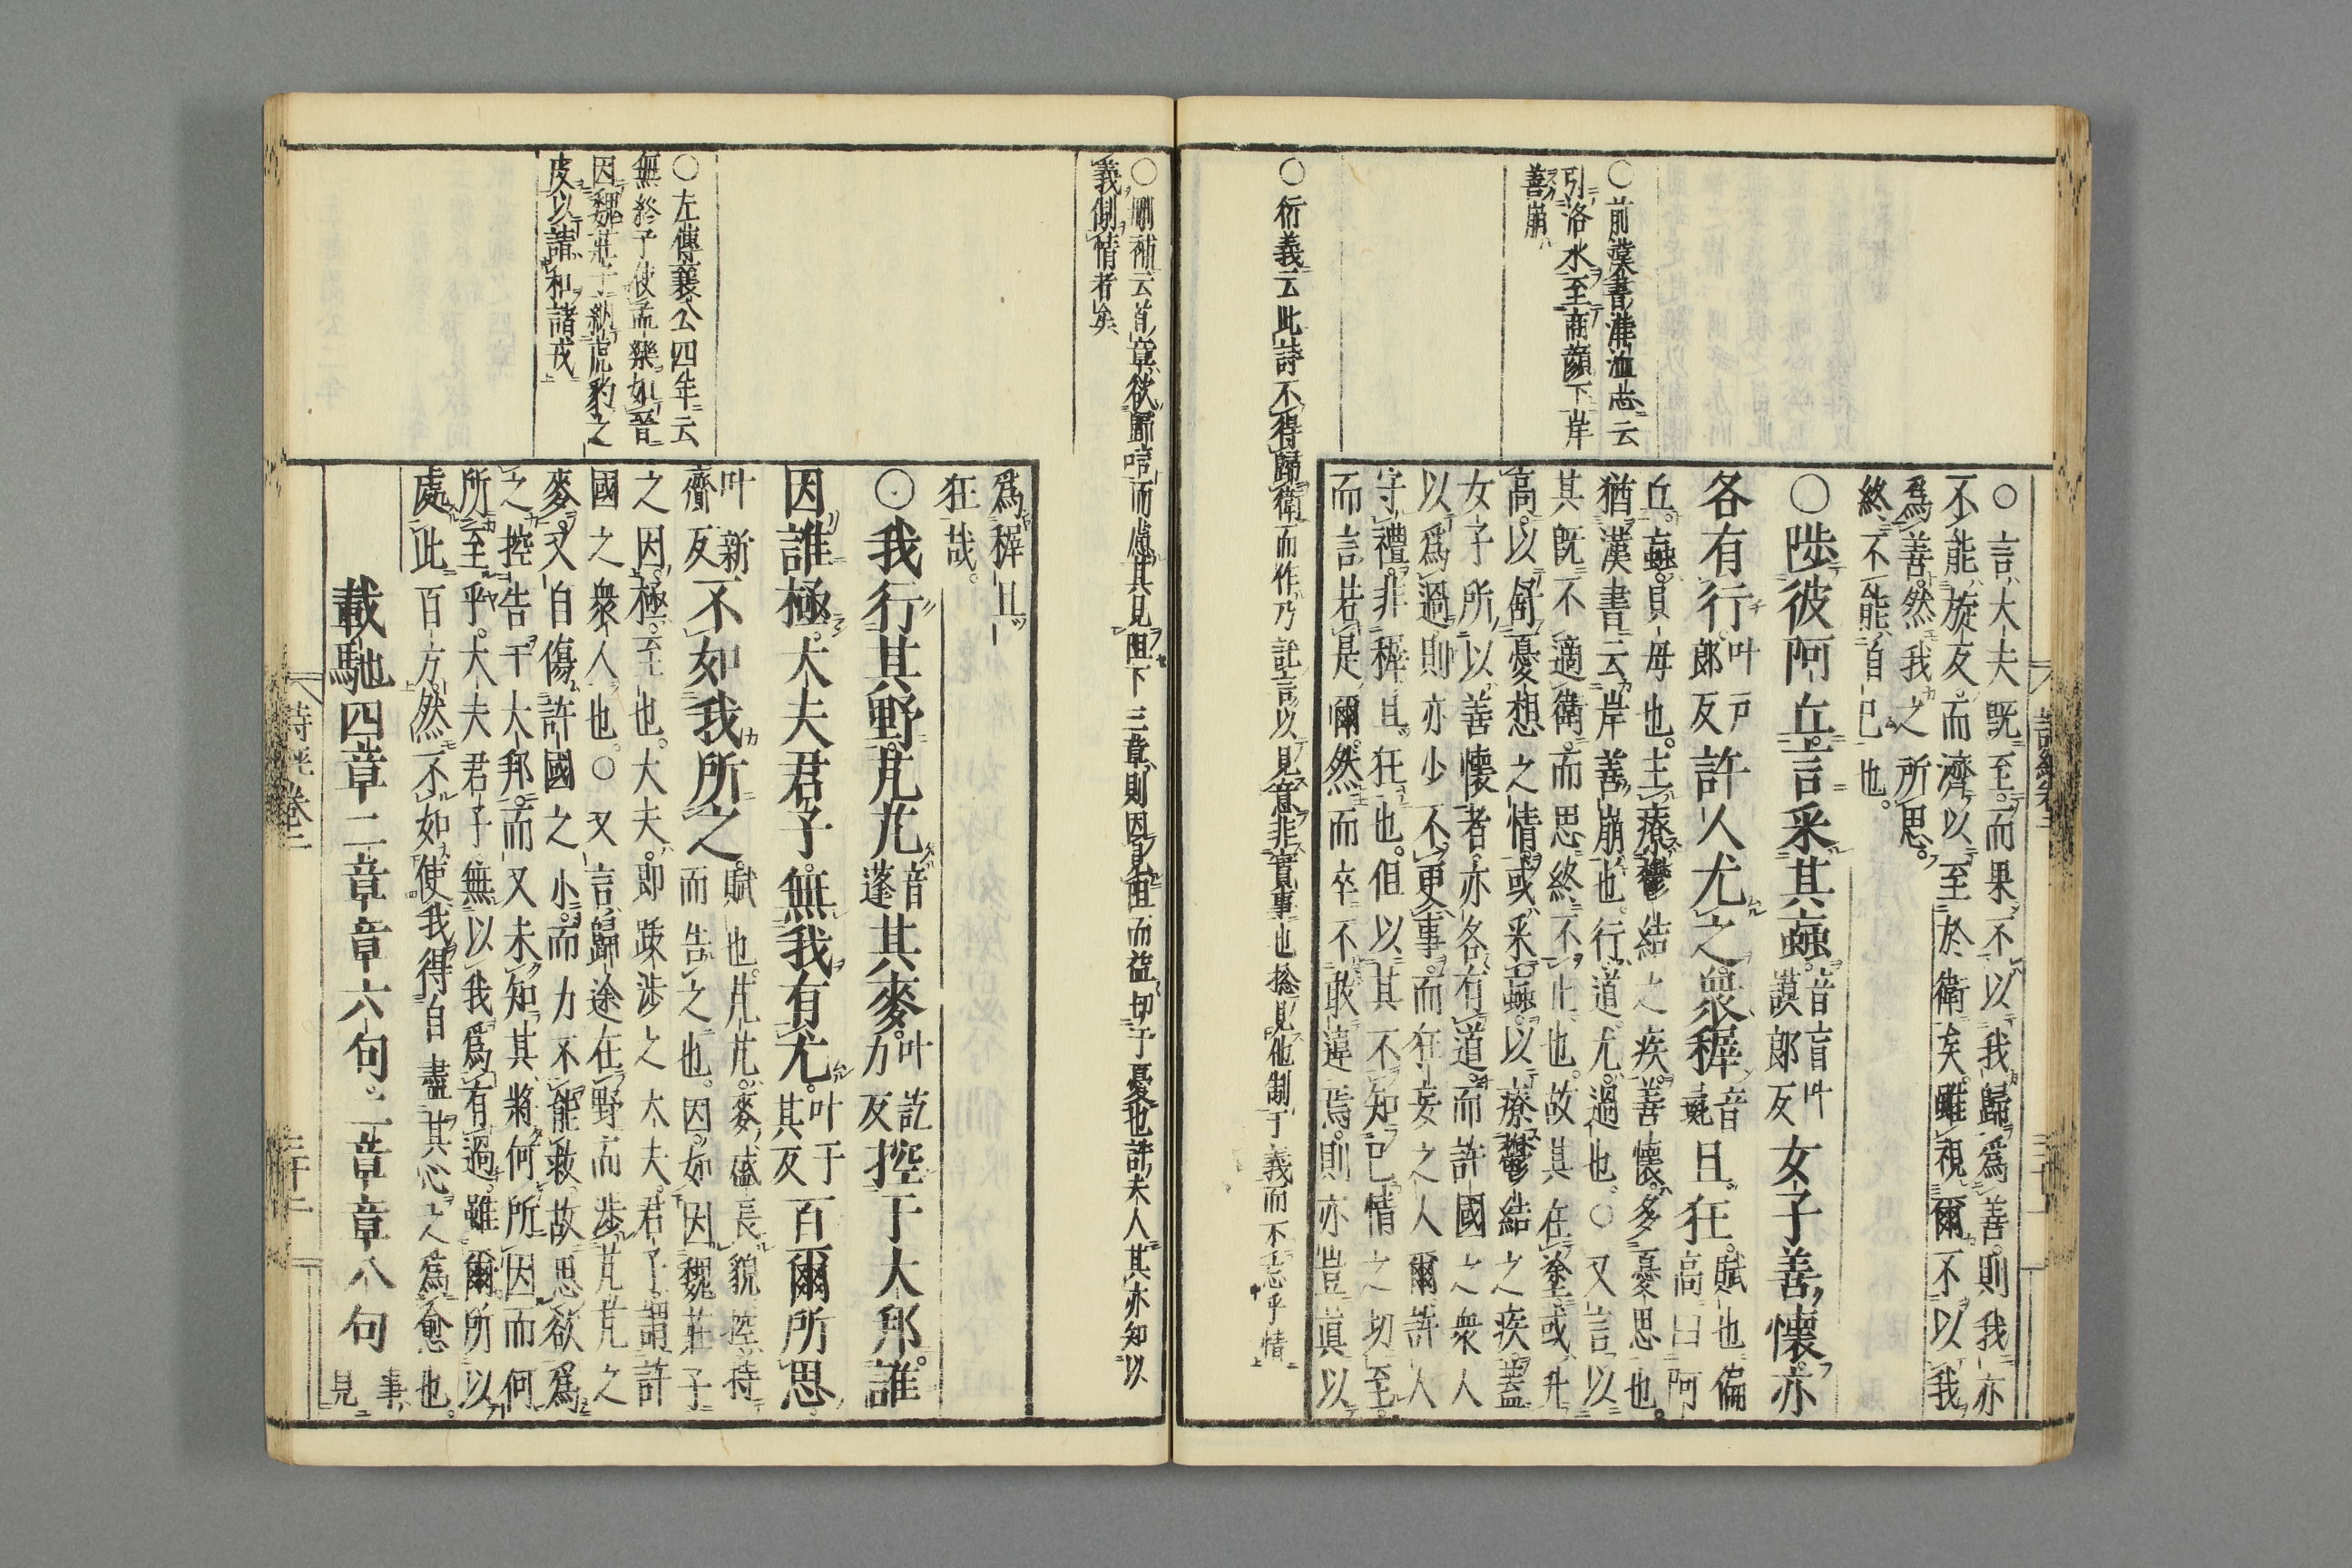 ○言大夫既至而果不以我歸爲善則我亦
不能旋反而濟以至於衛矣雖視爾不以我
爲善然我之所思
終不能自已也
○陟彼阿丘言采其蝱音盲叶謨郎反女子善懷亦
各有行叶戸郎反許人尤之衆穉音稚且狂賦也偏高曰阿
丘蝱貝母也主療鬱結之疾善懷多憂思也
猶漢書云岸善崩也行道尤過也○又言以
其既不適衛而思終不止也故其在塗或升
高以舒憂想之情或采蝱以療鬱結之疾蓋
女子所以善懷者亦各有道而許國之衆人
以爲過則亦少不更事而狂妄之人爾許人
守禮非穉且狂也但以其不知已情之切至
而言若是爾然而卒不敢違焉則亦豈眞以
○前漢書溝洫志云
引洛水至商顏下岸
善崩
○衍義云此詩不得歸衛而作乃託言以見意非實事也捴見他制于義而不忘乎情
詩經卷二
○刪補云首章欲歸唁而慮其見阻下三章則因見阻而益切于憂也許大人其亦知以
義制情者矣
爲穉且
狂哉
○我行其野芃芃音蓬其麥叶訖力反控于大邦誰
因誰極大夫君子無我有尤叶于其反百爾所思
叶新齎反不如我所之賦也芃芃麥盛長貌控持而告之也因如因魏莊子
之因極至也大夫即跋涉之大夫君子謂許
國之衆人也○又言歸途在野而涉芃芃之
麥又自傷許國之小而力不能救故思欲爲
之控告于大邦而又未知其將何所因而何
所至乎大夫君子無以我爲有過雖爾所以
處此百方然不如使我得自盡其心之爲愈也
載馳四章二章章六句二章章八句事見
○左傳襄公四年云
無終子使孟樂如晉
因魏莊子納虎豹之
皮以請和諸戎
詩經卷二